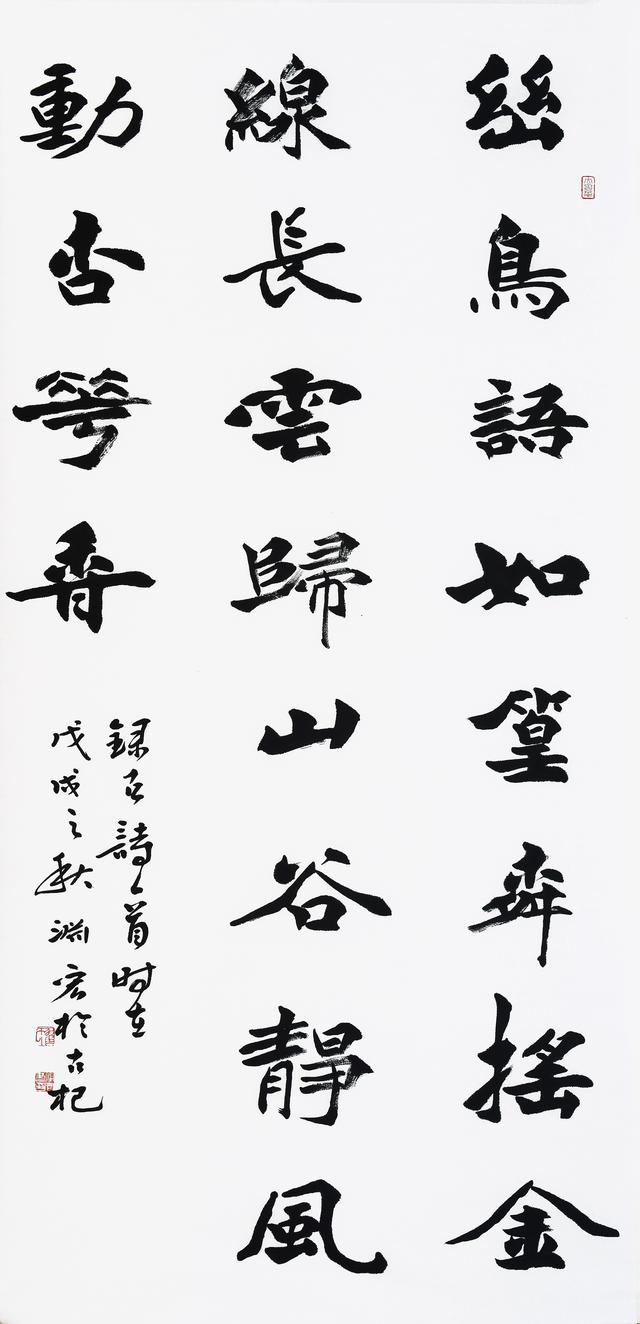 幽鳥語如篁柳搖金
線長雲歸山谷靜風
動杏花香
録古詩一首时在
戊戌之秋淵宏於古杞